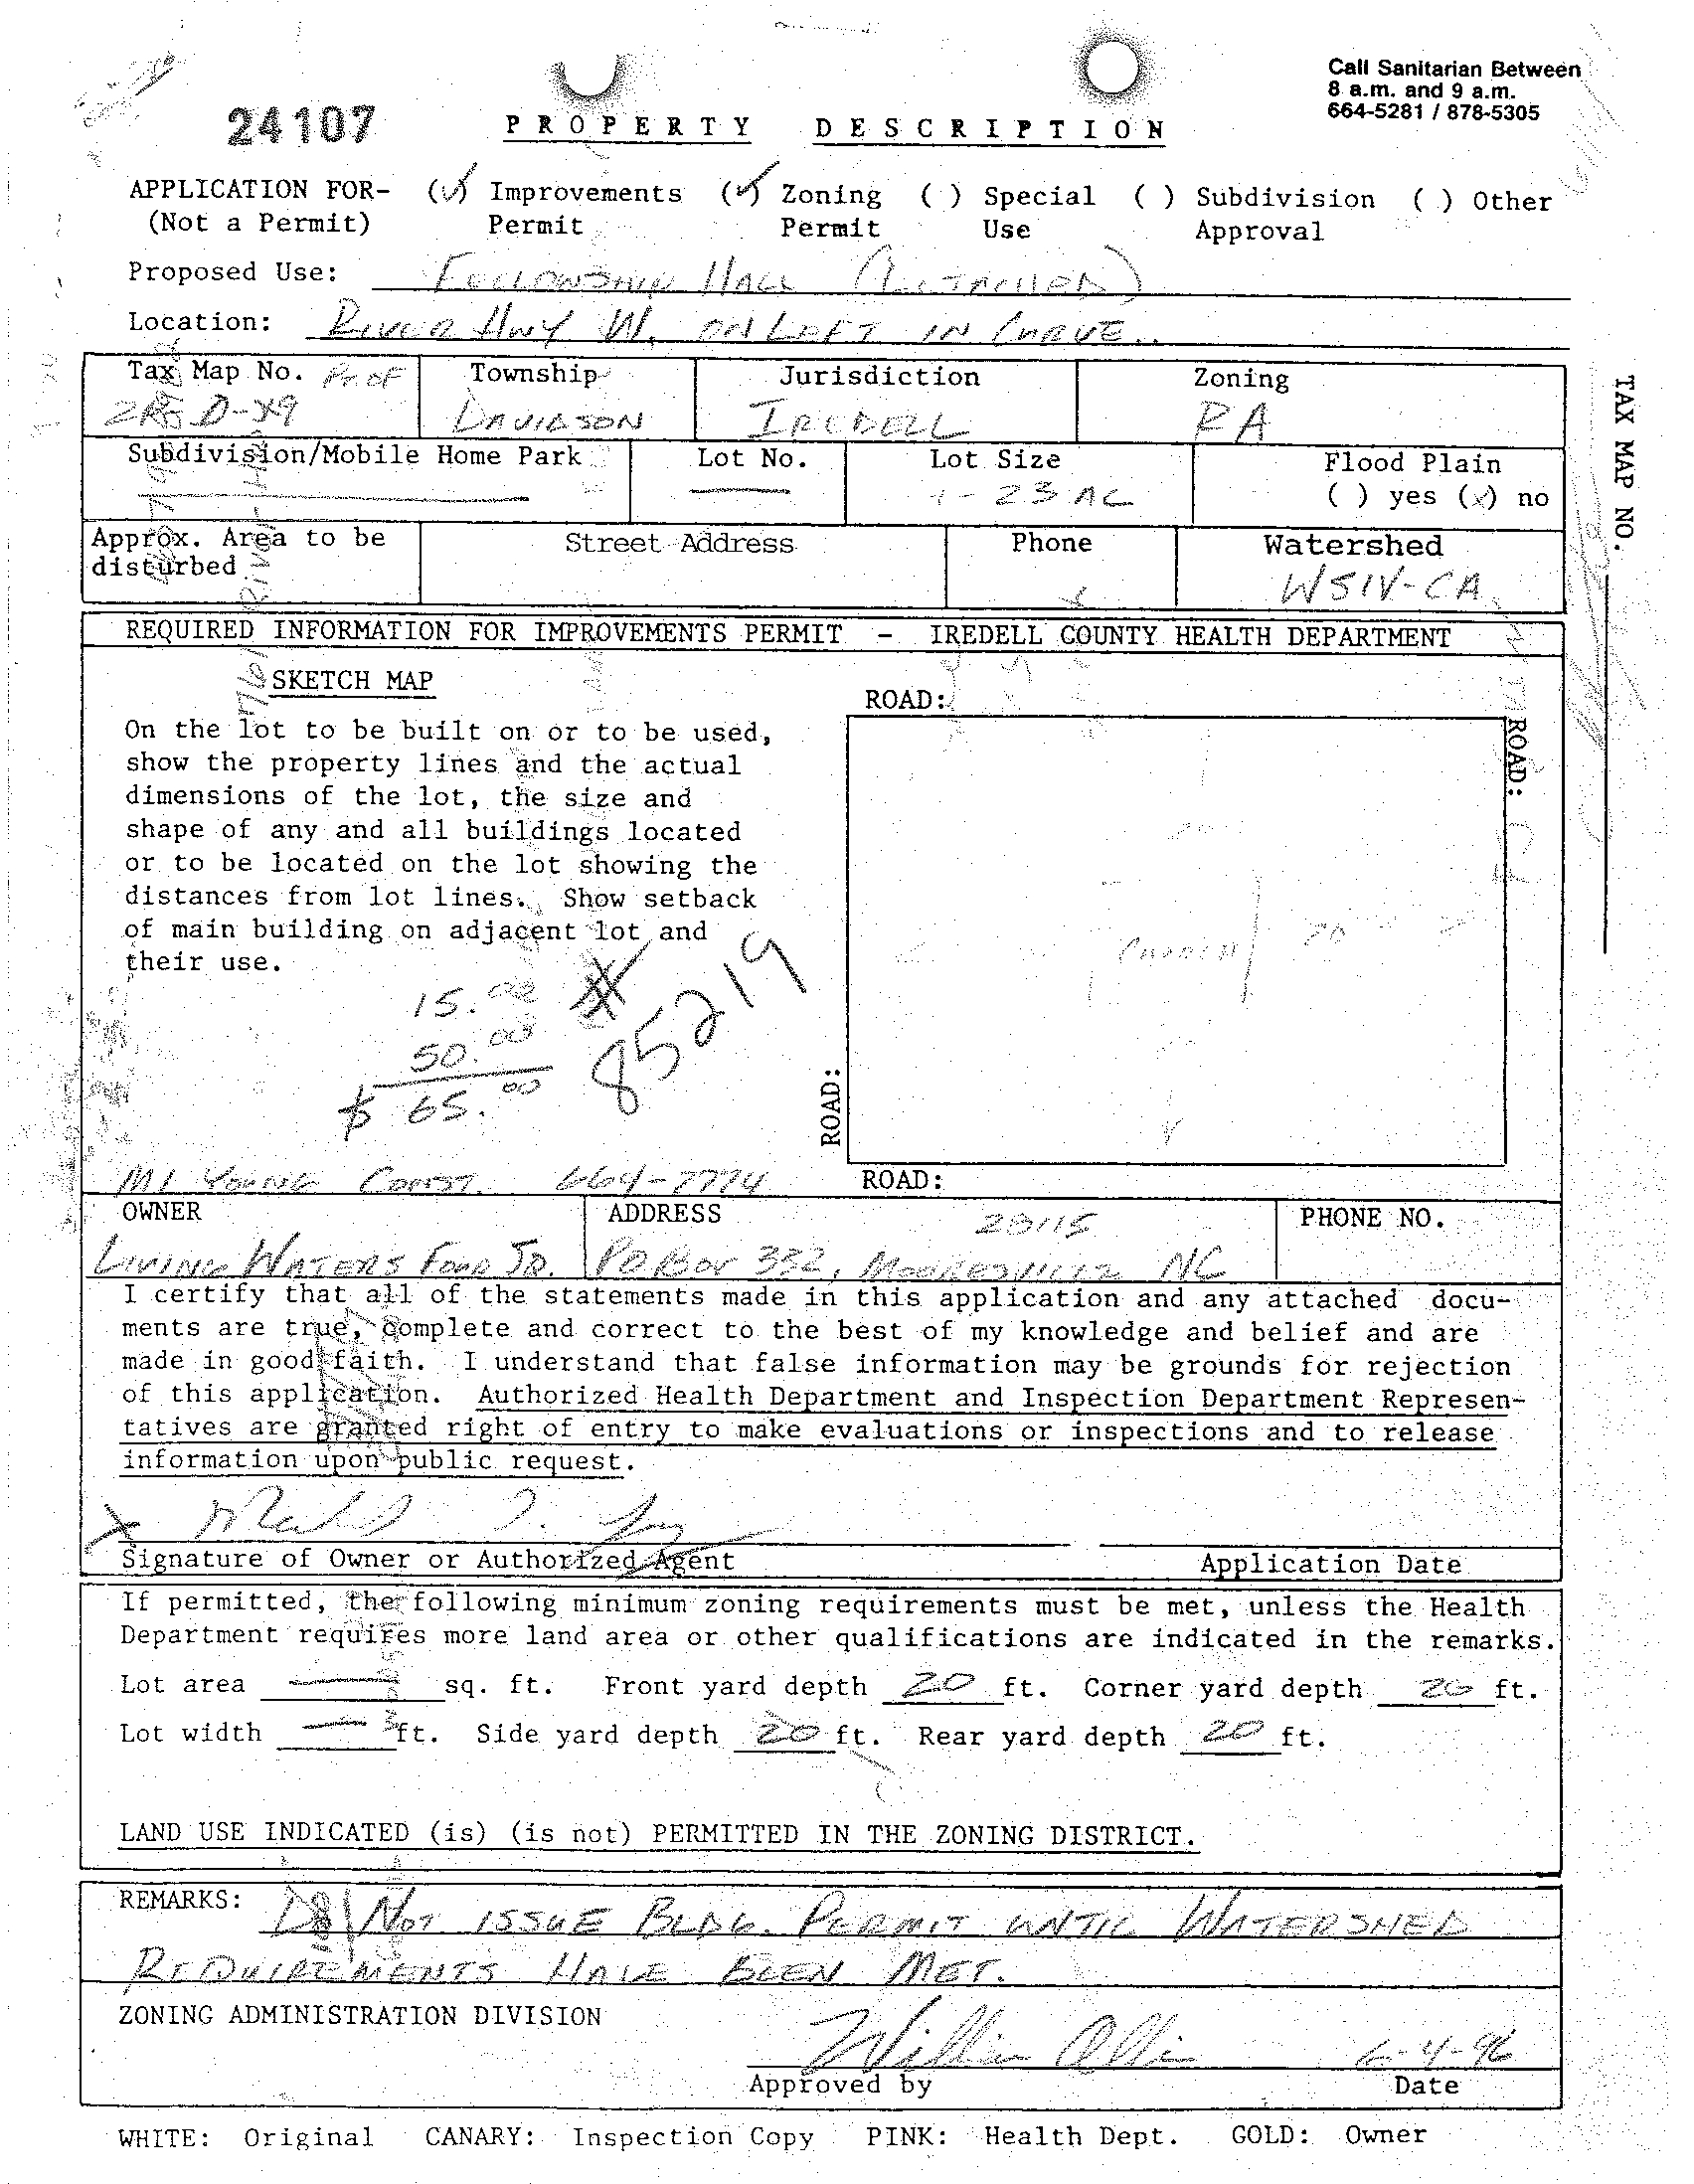 Call Sanitarian Between
8 a.m. and 9 a.m.
664-5281 / 878-5305
24107
PROPERTY DESCRIPTION
APPLICATION FOR- (✓) Improvements (✓) Zoning ( ) Special ( ) Subdivision ( ) Other
(Not a Permit) Permit Permit Use Approval
Proposed Use: FELLOWSHIP HALL
Location: RIVER HWY W. ON LEFT IN CURVE
Tax Map No. Township Jurisdiction Zoning
DAVIDSON IREDELL RA
Subdivision/Mobile Home Park Lot No. Lot Size Flood Plain
23 AC ( ) yes (x) no
Approx. Area to be Street Address Phone Watershed
disturbed
WSIV-CA
TAX MAP NO.
REQUIRED INFORMATION FOR IMPROVEMENTS PERMIT - IREDELL COUNTY HEALTH DEPARTMENT
SKETCH MAP
ROAD:
ROAD:
On the lot to be built on or to be used,
show the property lines and the actual
dimensions of the lot, the size and
shape of any and all buildings located
or to be located on the lot showing the
distances from lot lines. Show setback
of main building on adjacent lot and
their use.
CHURCH
15.00
50.00
$ 65.00
# 85219
ROAD:
MI YOUNG CONST. 664-7774
ROAD:
OWNER ADDRESS 28115 PHONE NO.
LIVING WATERS FOUR SQ. PO BOX 332, MOORESVILLE NC
I certify that all of the statements made in this application and any attached docu-
ments are true, complete and correct to the best of my knowledge and belief and are
made in good faith. I understand that false information may be grounds for rejection
of this application. Authorized Health Department and Inspection Department Represen-
tatives are granted right of entry to make evaluations or inspections and to release
information upon public request.
X
Signature of Owner or Authorized Agent Application Date
If permitted, the following minimum zoning requirements must be met, unless the Health
Department requires more land area or other qualifications are indicated in the remarks.
Lot area sq. ft. Front yard depth 20 ft. Corner yard depth 20 ft.
Lot width ft. Side yard depth 20 ft. Rear yard depth 20 ft.
LAND USE INDICATED (is) (is not) PERMITTED IN THE ZONING DISTRICT.
REMARKS: DO NOT ISSUE BLDG. PERMIT UNTIL WATERSHED
REQUIREMENTS HAVE BEEN MET.
ZONING ADMINISTRATION DIVISION
William Allison 6-4-96
Approved by Date
WHITE: Original CANARY: Inspection Copy PINK: Health Dept. GOLD: Owner